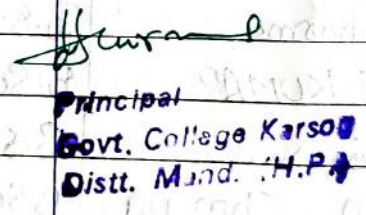 Principal
Govt. College Karsog
Distt. Mand. (H.P.)